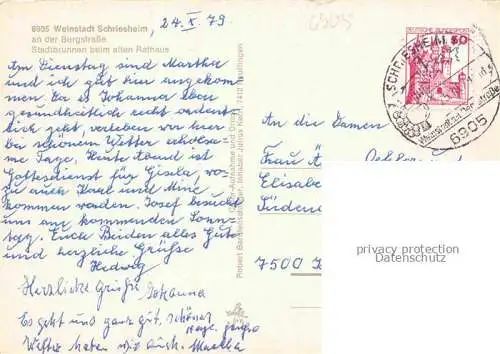 6905 Weinstadt Schriesheim
an der Bergstraße
Stadtbrunnen beim alten Rathaus
24. X. 79
6905
Am Dienstag sind Martha
und ich gut hier angekommen.
Da es Johanna aber
gesundheitlich recht ordentlich
geht, verleben wir hier
bei schönem Wetter erholsame
Tage. Heute Abend ist
Gottesdienst für Gisela, wozu
auch Karl und Mine
kommen werden. Josef besucht
uns am kommenden Sonntag.
Euch Beiden alles Gute
und herzliche Grüße
Hedwig
Herzliche Grüße Johanna
Es geht uns ganz gut, schönes
Wetter haben wir auch. Martha
Color-Aufnahme und Druck
7410 Reutlingen
DEUTSCHE BUNDESPOST
50
SCHRIESHEIM
6905
An die Damen
Frau
Elisabe
Südend
7500
privacy protection
Datenschutz